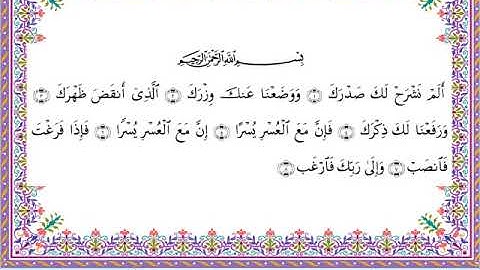 بِسْمِ اللَّهِ الرَّحْمَٰنِ الرَّحِيمِ
أَلَمْ نَشْرَحْ لَكَ صَدْرَكَ ۝١ وَوَضَعْنَا عَنكَ وِزْرَكَ ۝٢ الَّذِي أَنقَضَ ظَهْرَكَ ۝٣
وَرَفَعْنَا لَكَ ذِكْرَكَ ۝٤ فَإِنَّ مَعَ الْعُسْرِ يُسْرًا ۝٥ إِنَّ مَعَ الْعُسْرِ يُسْرًا ۝٦ فَإِذَا فَرَغْتَ
فَانصَبْ ۝٧ وَإِلَىٰ رَبِّكَ فَارْغَب ۝٨